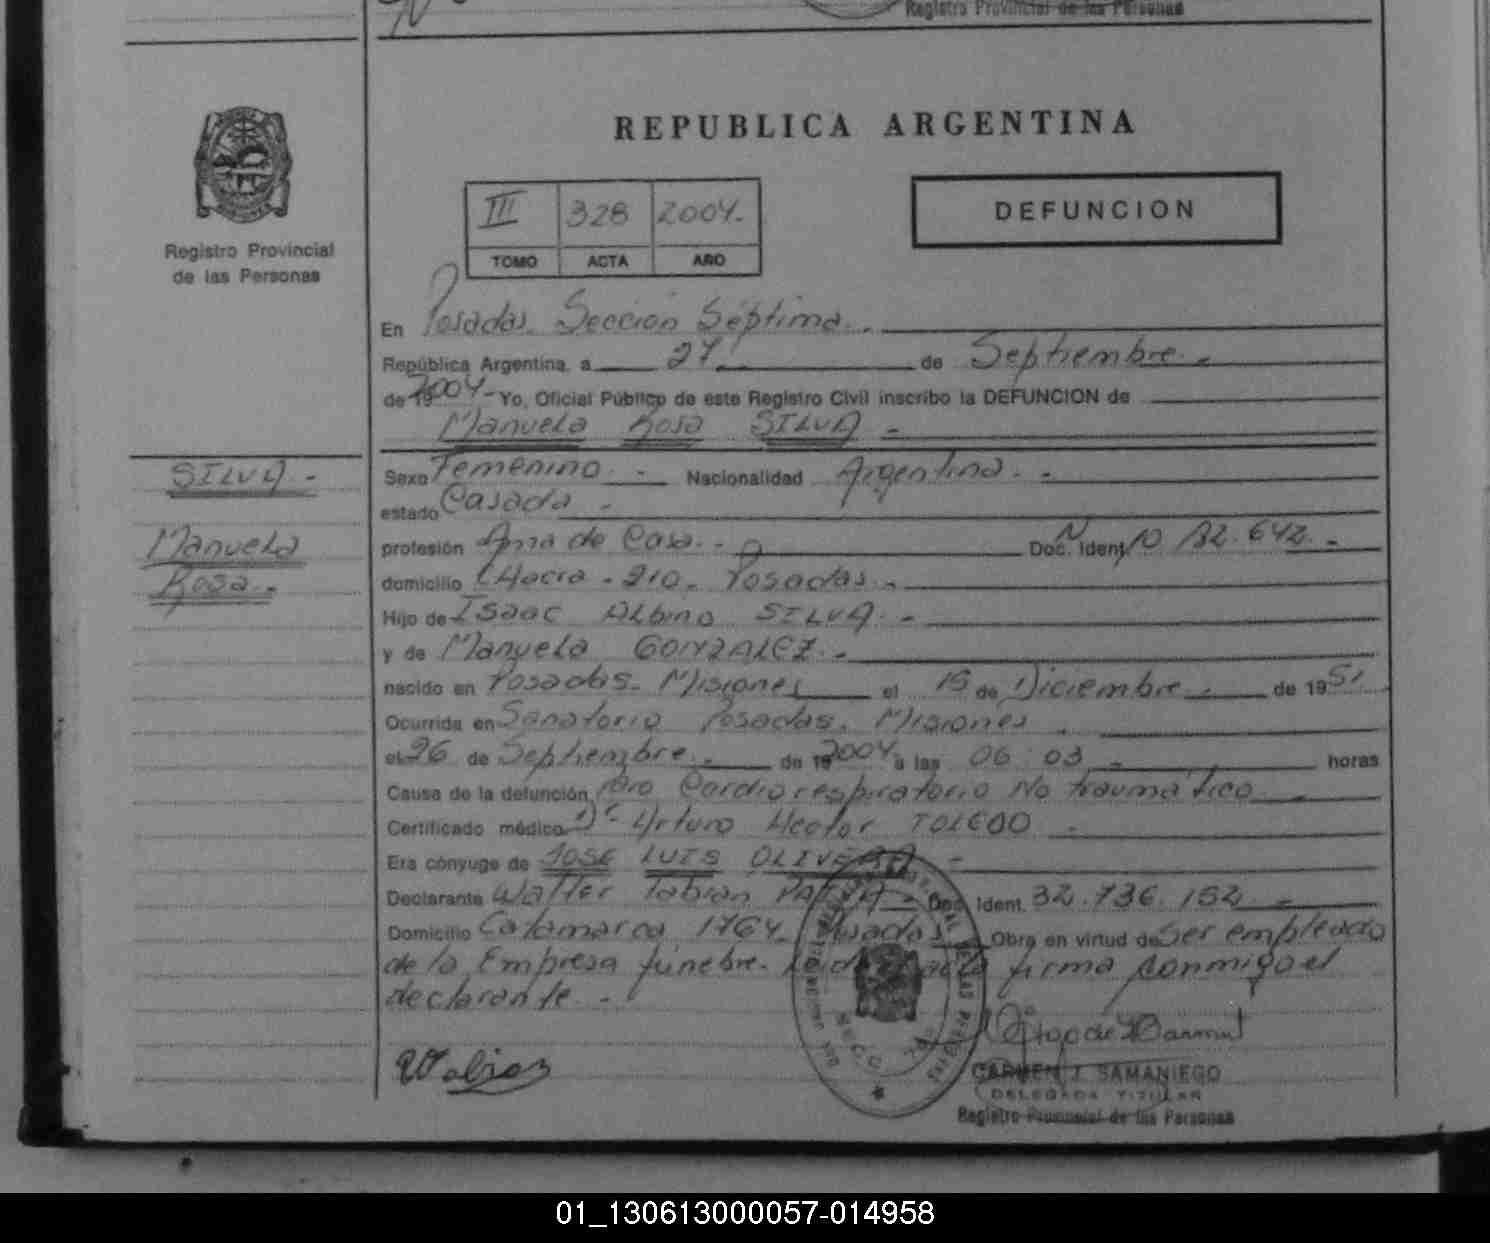 Registro Provincial de las Personas
REPUBLICA ARGENTINA
Registro Provincial
de las Personas
III 328 2004.-
TOMO ACTA AÑO
DEFUNCION
En Posadas. Sección Séptima.-
República Argentina, a 27 de Septiembre.-
de 19 2004- Yo, Oficial Público de este Registro Civil inscribo la DEFUNCION de
Manuela Rosa SILVA -
SILVA -
Manuela
Rosa.-
Sexo Femenino.- Nacionalidad Argentina.-
estado Casada -
profesión Ama de Casa.- Doc. Ident. N 10 132.642.-
domicilio Chacra - 210. Posadas.-
Hijo de Isaac Albino SILVA.-
y de Manuela GONZALEZ.-
nacido en Posadas. Misiones el 15 de Diciembre.- de 1951
Ocurrida en Sanatorio Posadas. Misiones.
el 26 de Septiembre.- de 19 2004 a las 06 03.- horas
Causa de la defunción Paro Cardiorespiratorio No traumático.-
Certificado médico Dr Arturo Hector TOLEDO.
Era cónyuge de JOSE LUIS OLIVERA -
Declarante Walter Fabian - Doc. Ident. 32.736.152.-
Domicilio Catamarca 1764. Posadas Obra en virtud de Ser empleado
de la Empresa fúnebre. acta firma conmigo el
declarante.-
CARMEN J. SAMANIEGO
DELEGADA TITULAR
Registro Provincial de las Personas
01_130613000057-014958